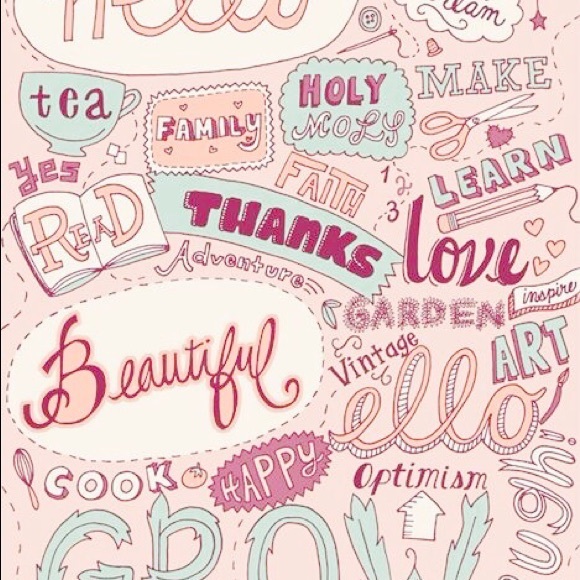 Hello
eam
tea
FAMILY
HOLY
MOLY
MAKE
Yes
FAITH
1 2
3
LEARN
READ
THANKS
love
Adventure
GARDEN
inspire
Beautiful
Vintage
ART
ello
COOK
HAPPY
Optimism
ugh!
GROW